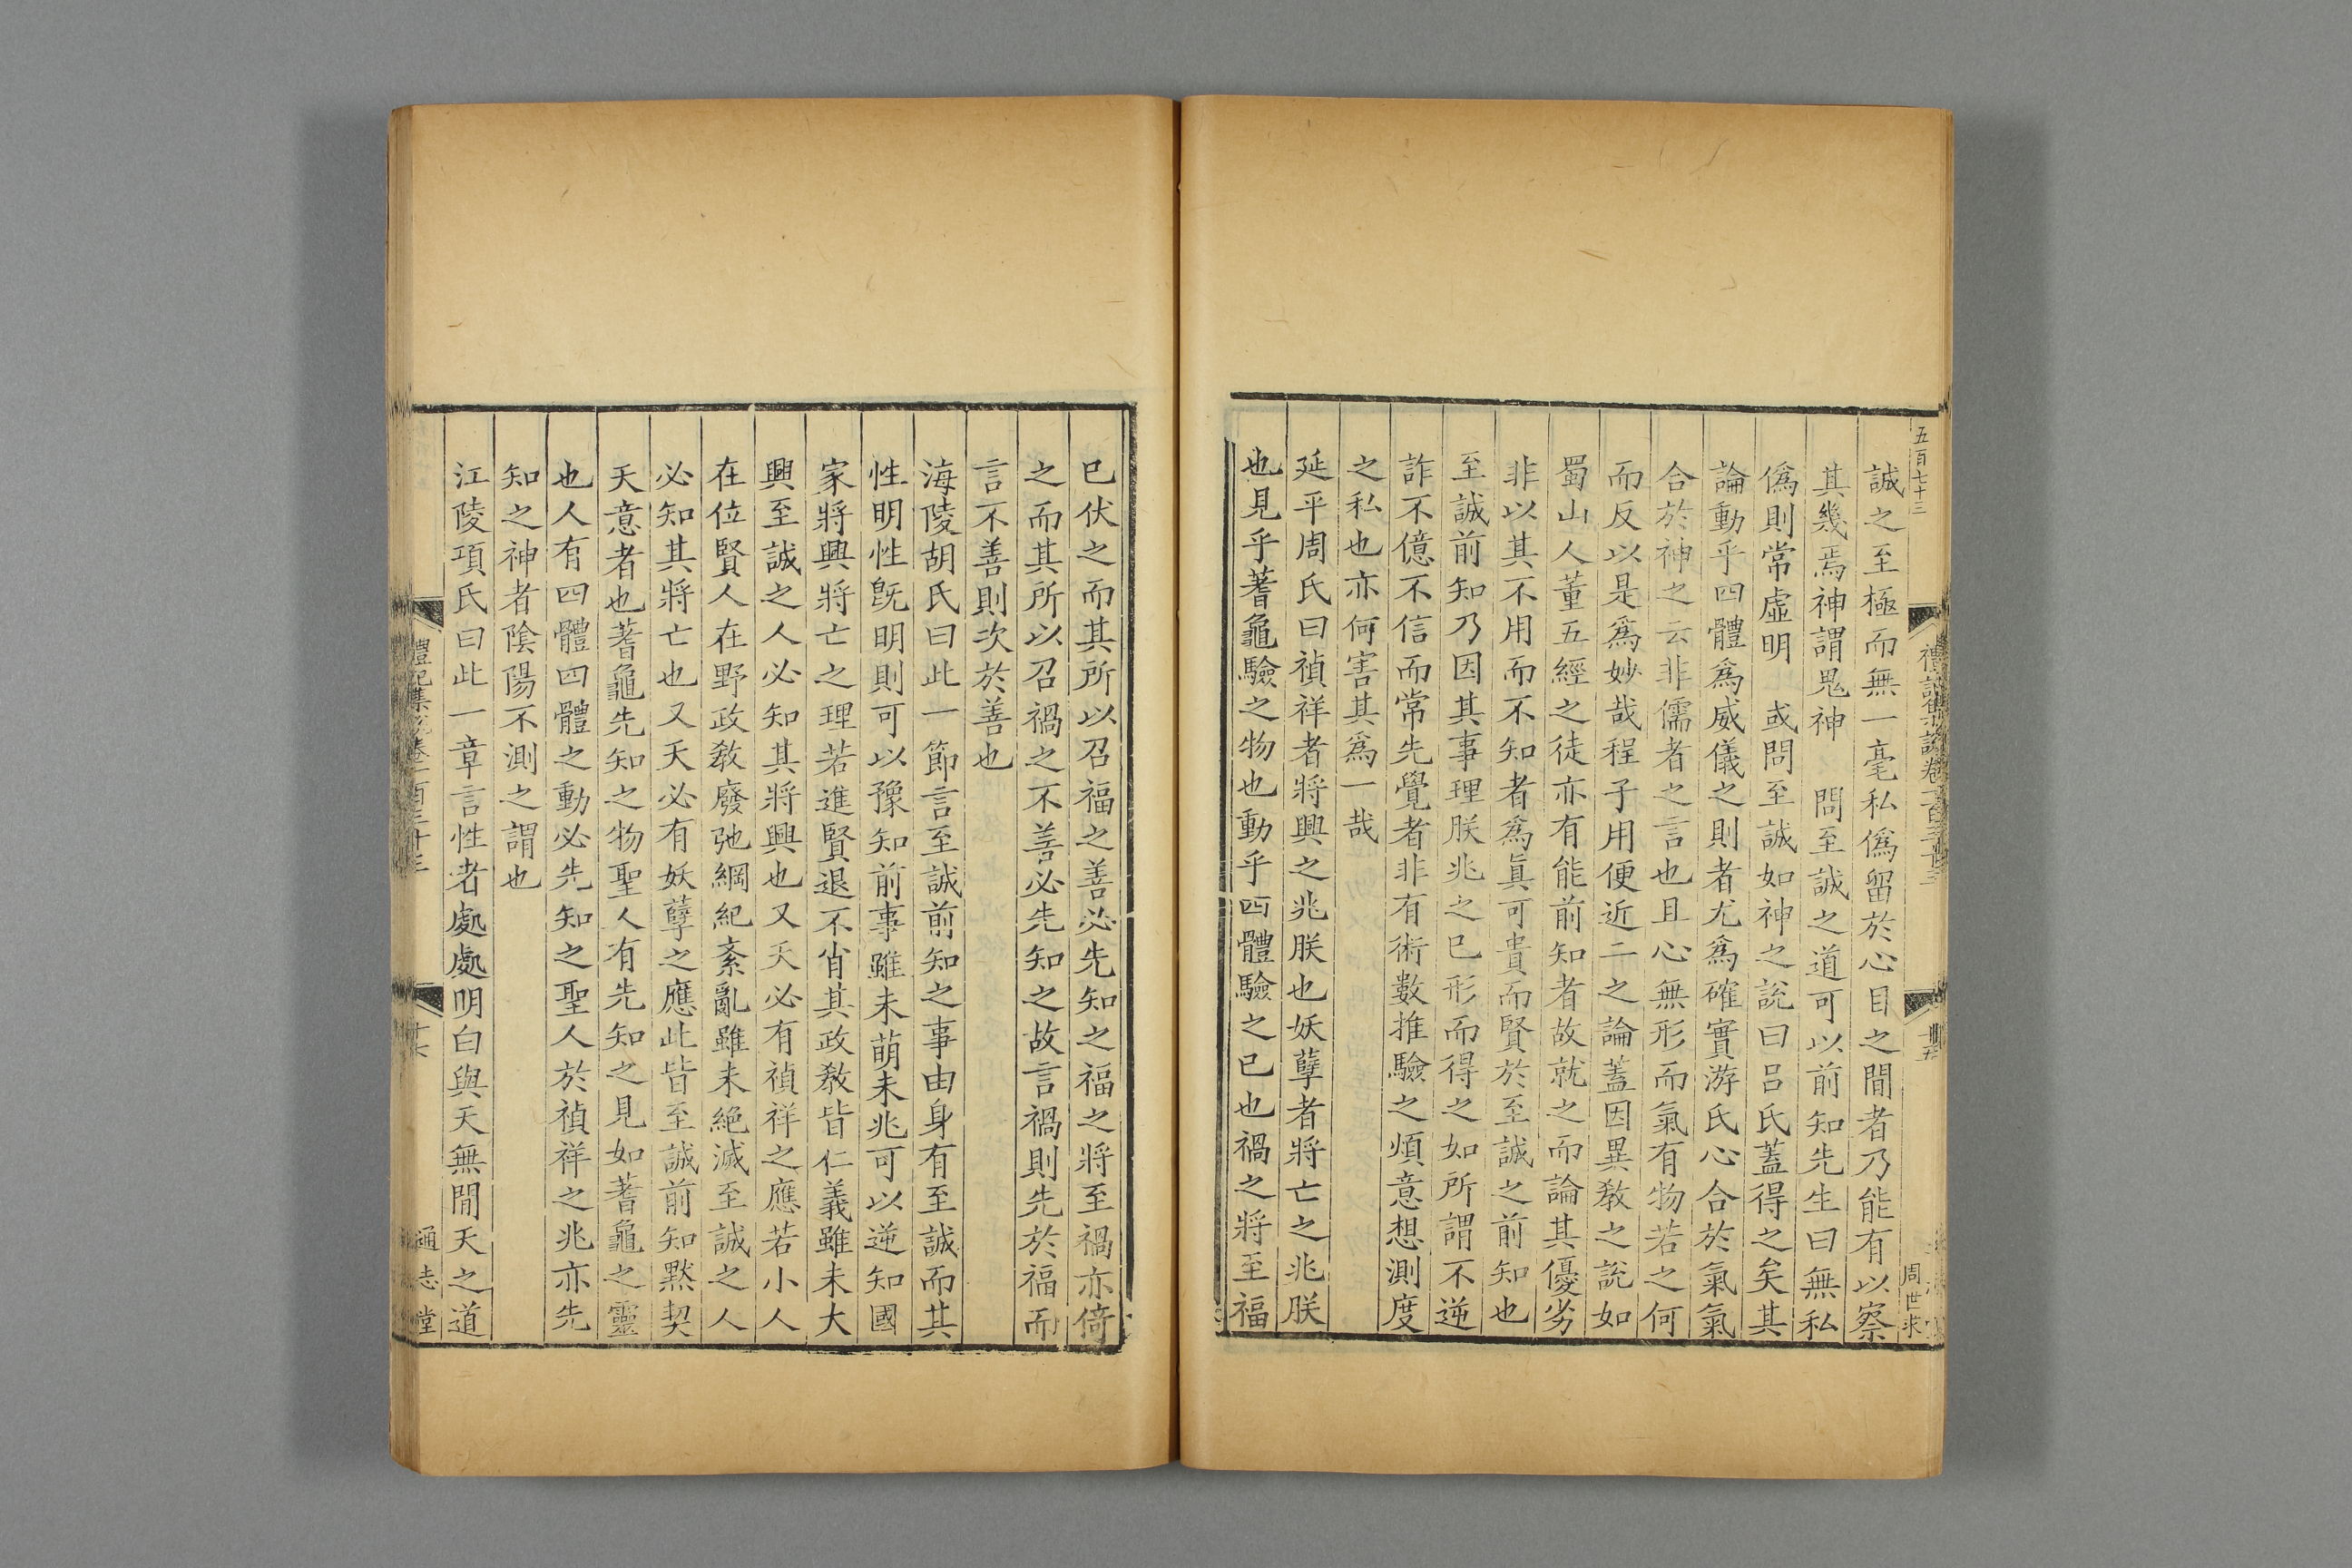 五百七十三
誠之至極而無一毫私僞留於心目之間者乃能有以察
其幾焉神謂鬼神　問至誠之道可以前知先生曰無私
僞則常虛明　或問至誠如神之說曰呂氏蓋得之矣其
論動乎四體爲威儀之則者尤爲確實游氏心合於氣氣
合於神之云非儒者之言也且心無形而氣有物若之何
而反以是爲妙哉程子用便近二之論蓋因異敎之說如
蜀山人董五經之徒亦有能前知者故就之而論其優劣
非以其不用而不知者爲眞可貴而賢於至誠之前知也
至誠前知乃因其事理朕兆之已形而得之如所謂不逆
詐不億不信而常先覺者非有術數推驗之煩意想測度
之私也亦何害其爲一哉
延平周氏曰禎祥者將興之兆朕也妖孼者將亡之兆朕
也見乎蓍龜驗之物也動乎四體驗之已也禍之將至福
周世求
已伏之而其所以召福之善必先知之福之將至禍亦倚
之而其所以召禍之不善必先知之故言禍則先於福而
言不善則次於善也
海陵胡氏曰此一節言至誠前知之事由身有至誠而其
性明性旣明則可以豫知前事雖未萌未兆可以逆知國
家將興將亡之理若進賢退不肖其政敎皆仁義雖未大
興至誠之人必知其將興也又天必有禎祥之應若小人
在位賢人在野政敎廢弛綱紀紊亂雖未絕滅至誠之人
必知其將亡也又天必有妖孼之應此皆至誠前知默契
天意者也蓍龜先知之物聖人有先知之見如蓍龜之靈
也人有四體四體之動必先知之聖人於禎祥之兆亦先
知之神者陰陽不測之謂也
江陵項氏曰此一章言性者處處明白與天無間天之道
禮記集說卷一百三十三
通志堂